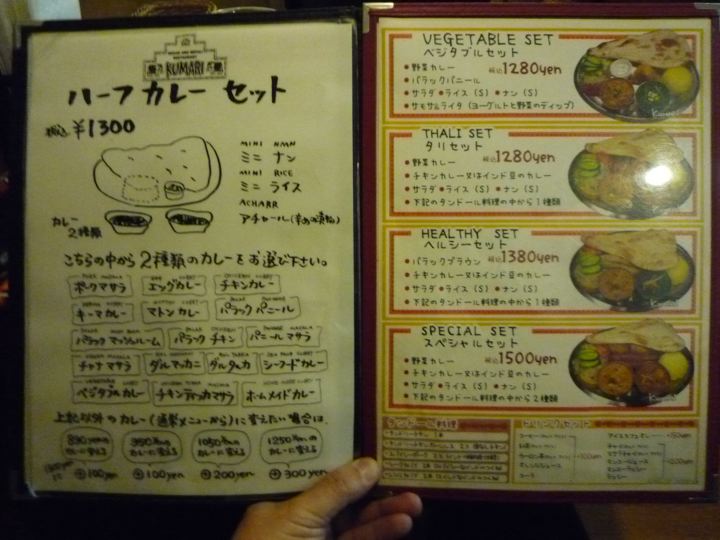 KUMARI
ハーフ カレー セット
税込 ¥1300
MINI NAN
ミニ ナン
MINI RICE
ミニ ライス
ACHARR
アチャール
カレー
2種類
こちらの中から2種類のカレーをお選び下さい。
ポークマサラ エッグカレー チキンカレー
キーマカレー マトンカレー パラックパニール
パラックマッシュルーム パラックチキン パニールマサラ
チャナマサラ ダルマッカニ ダルタルカ シーフードカレー
ベジタブルカレー チキンティッカマサラ ホームメイドカレー
上記以外のカレー(通常メニューから)に変えたい場合は
カレーに変える カレーに変える カレーに変える カレーに変える
⊕100yen ⊕100yen ⊕200yen ⊕300yen
VEGETABLE SET
ベジタブルセット
●野菜カレー 税込1280yen
●パラックパニール
●サラダ ●ライス (S) ●ナン (S)
●サモサルライタ (ヨーグルトと野菜のディップ)
THALI SET
タリセット
●野菜カレー 税込1280yen
●チキンカレー又はインド豆のカレー
●サラダ ●ライス (S) ●ナン (S)
●下記のタンドール料理の中から1種類
HEALTHY SET
ヘルシーセット
●パラックブラウン 税込1380yen
●チキンカレー又はインド豆のカレー
●サラダ ●ライス (S) ●ナン (S)
●下記のタンドール料理の中から1種類
SPECIAL SET
スペシャルセット
●野菜カレー 税込1500yen
●チキンカレー又はインド豆のカレー
●サラダ ●ライス (S) ●ナン (S)
●下記のタンドール料理の中から2種類
タンドール料理
ドリンクセット